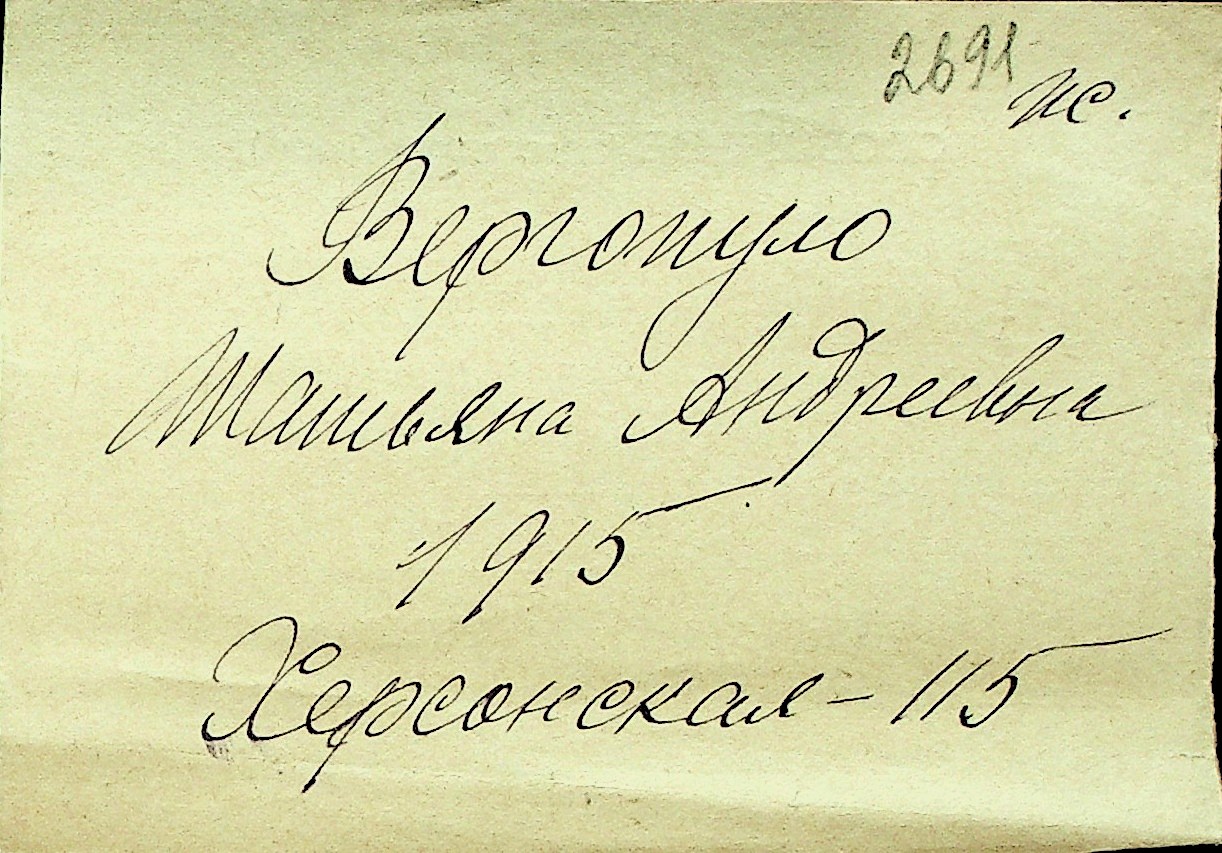 2691
ж.
Вергопуло
Татьяна Андреевна
1915
Херсонская - 115